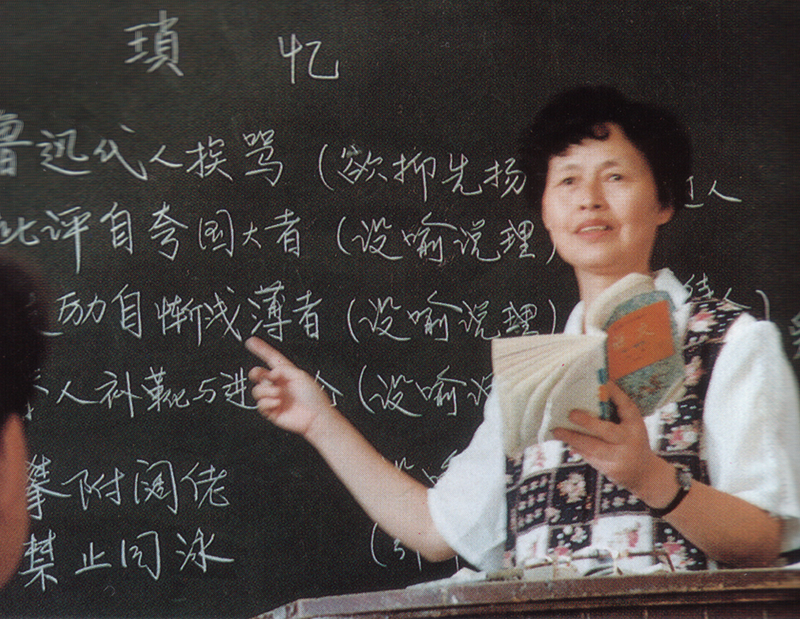 瑣忆
鲁迅代人挨骂(欲抑先扬 人
批评自夸国大者(设喻说理)
励自惭浅薄者(设喻说理) 待人)
人补靴与进 (设喻说
攀附阔佬 设喻
禁止同泳 (